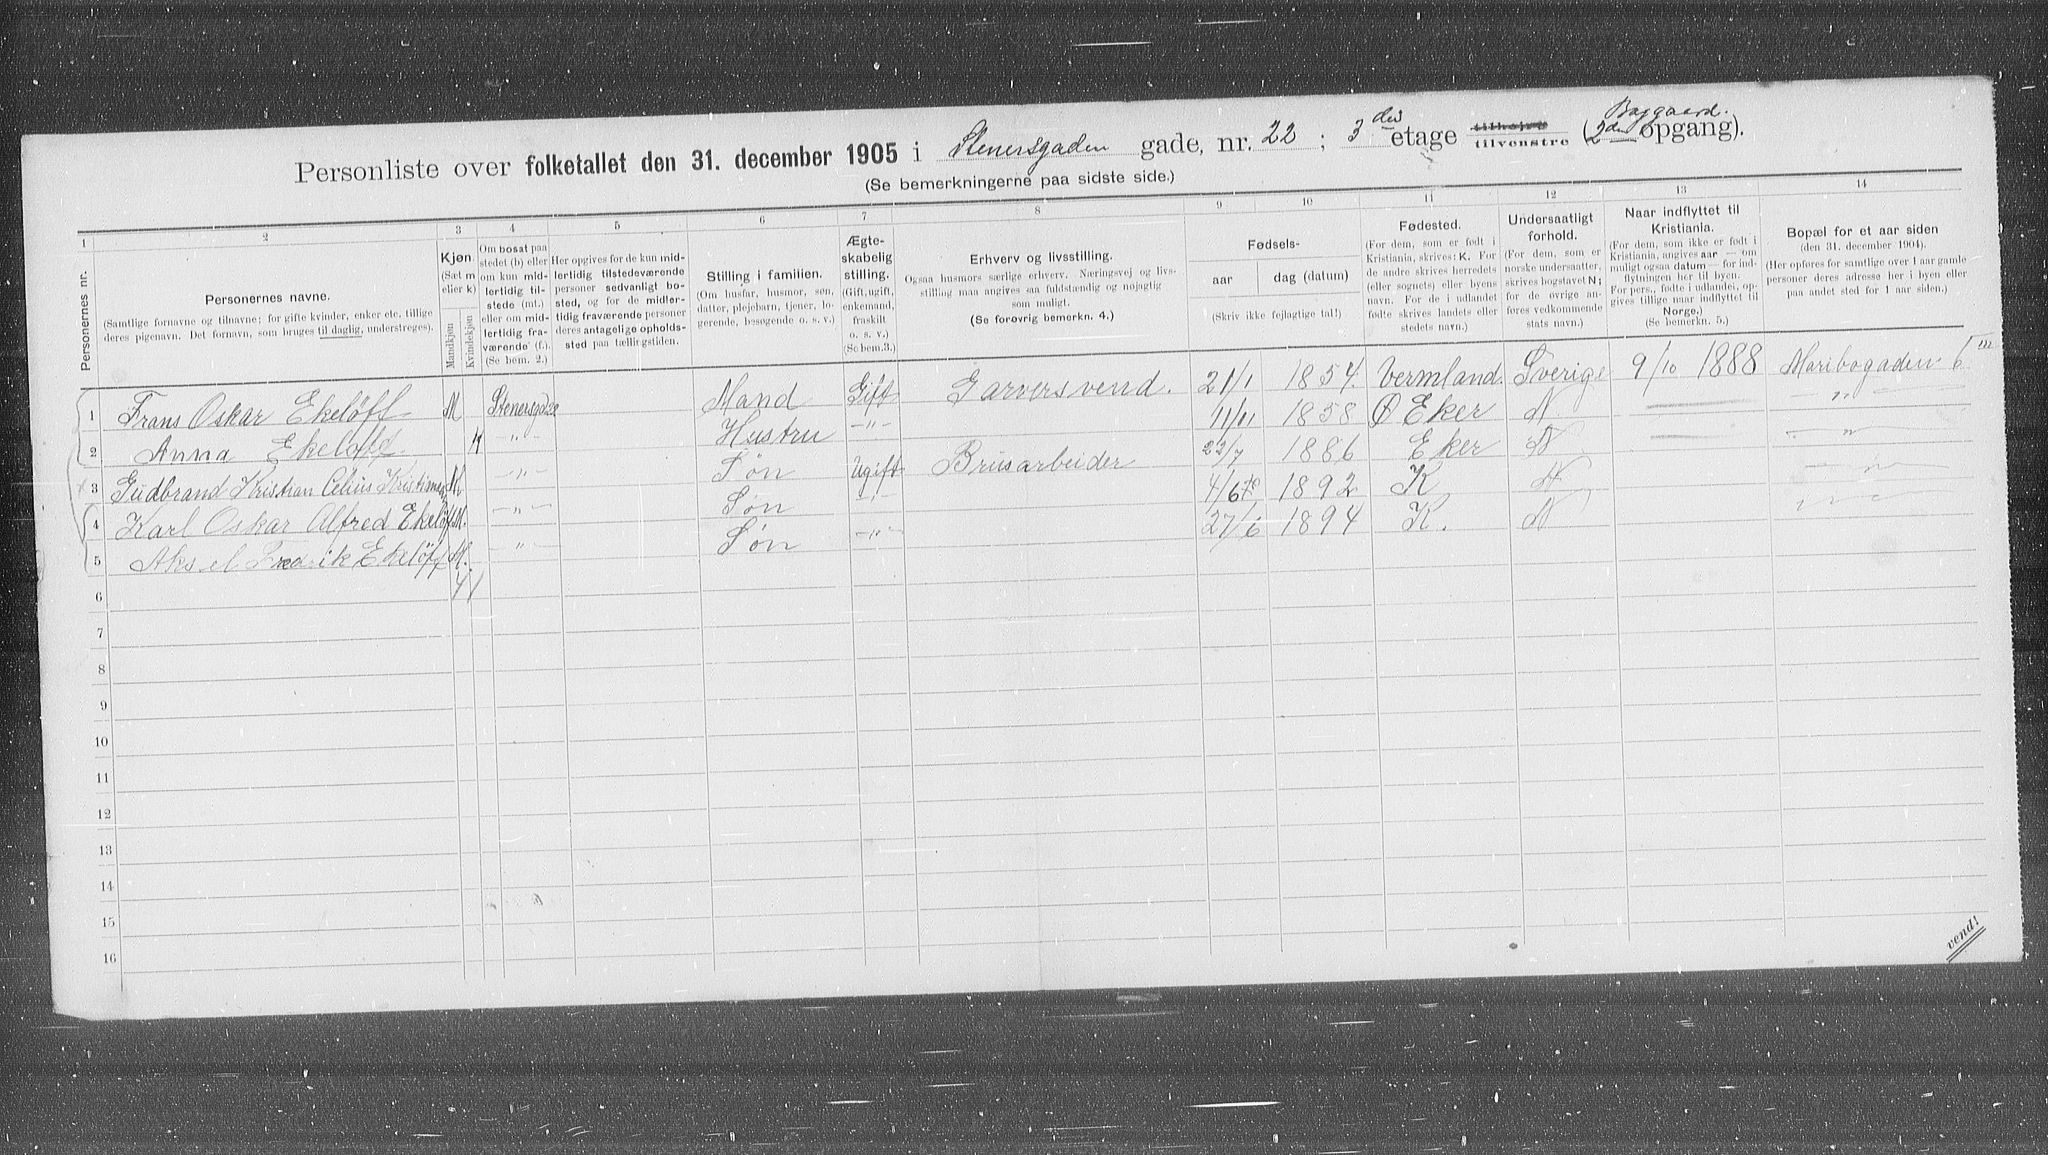 Baggaard.
Personliste over folketallet den 31. december 1905 i Stenersgaden gade, nr. 22 ; 3 die etage tilhøire tilvenstre (2den opgang).
(Se bemerkningerne paa sidste side.)
1 2 3 4 5 6 7 8 9 10 11 12 13 14
Personernes nr.
Personernes navne.
(Samtlige fornavne og tilnavne; for gifte kvinder, enker etc. tillige
deres pigenavn. Det fornavn, som bruges til daglig, understreges).
Kjøn.
(Sæt m
eller k)
Mandkjøn
Kvindekjøn
Om bosat paa
stedet (b) eller
om kun mid-
lertidig til-
stede (mt.)
eller om mid-
lertidig fra-
værende (f.).
(Se bem. 2.)
Her opgives for de kun mid-
lertidig tilstedeværende
personer sedvanligt bo-
sted, og for de midler-
tidig fraværende personer
deres antagelige opholds-
sted paa tællingstiden.
Stilling i familien.
(Om husfar, husmor, søn,
datter, plejebarn, tjener, lo-
gerende, besøgende o. s. v.)
Ægte-
skabelig
stilling.
(Gift, ugift,
enkemand,
fraskilt
o. s. v.)
(Se bem.3.)
Erhverv og livsstilling.
Ogsaa husmors særlige erhverv. Næringsvej og livs-
stilling maa angives saa fuldstændig og nøjagtig
som muligt.
(Se forøvrig bemerkn. 4.)
Fødsels-
aar dag (datum)
(Skriv ikke fejlagtige tal!)
Fødested.
(For dem, som er født i
Kristiania, skrives: K. For
de andre skrives herredets
(eller sognets) eller byens
navn. For de i udlandet
fødte skrives landets eller
stedets navn.)
Undersaatligt
forhold.
(For dem, som er
norske undersaatter,
skrives bogstavet N;
for de øvrige an-
føres vedkommende
stats navn.)
Naar indflyttet til
Kristiania.
(For dem, som ikke er født i
Kristiania, angives aar — om
muligt ogsaa datum — for ind-
flytningen her til byen.
For pers., fødte i udlandet, op-
gives tillige naar indflyttet til
Norge.)
(Se bemerkn. 5.)
Bopæl for et aar siden
(den 31. december 1904).
(Her opføres for samtlige over 1 aar gamle
personer deres adresse her i byen eller
paa andet sted for 1 aar siden.)
1 Frans Oskar Ekelöff M Stenersgade Mand Gift Garversvend. 21/1 1854. Vermland. Sverige 9/10 1888 Maribogaden 6 III
2 Anna Ekeloff. K -„- Hustru -„- 11/11 1858 Ø Eker N -„-
3 Gudbrand Kristian Celius Kristiansen M -„- Søn Ugift Brusarbeider 22/7 1886 Eker N -„-
4 Karl Oskar Alfred Ekelöf M. -„- Søn -„- 4/6 1892 K N -„-
5 Aksel Fredrik Ekelöff M. -„- Søn -„- 27/6 1894 K. N -„-
6 4 1
7
8
9
10
11
12
13
14
15
16
vend!